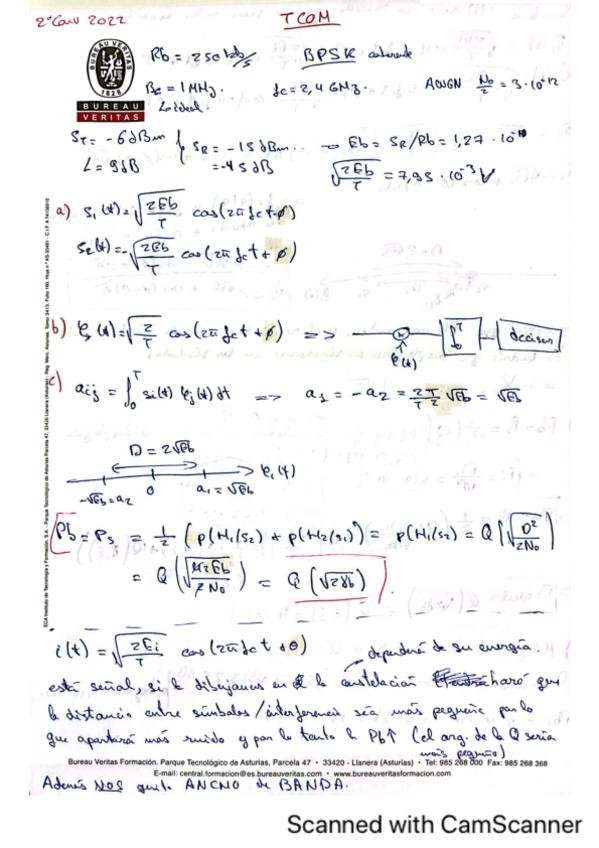 2ª Conv 2022
TCOM
BUREAU VERITAS
1828
BUREAU
VERITAS
Rb = 250 kb/s BPSK coherente
Bc = 1 MHz. fc = 2,4 GHz. AWGN No/2 = 3·10^-12
Lo ideal.
ST = -6 dBm
L = 9 dB
SR = -15 dBm
= -45 dB
→ Eb = SR/Rb = 1,27·10^-10
√(2Eb/T) = 7,95·10^-3 V
a) s1(t) = √(2Eb/T) cos(2π fc t + φ)
s2(t) = -√(2Eb/T) cos(2π fc t + φ)
b) φ1(t) = √(2/T) cos(2π fc t + φ) => ∫0^T decisor
φ(t)
c) aij = ∫0^T si(t) φj(t) dt => a1 = -a2 = 2/T T/2 √Eb = √Eb
D = 2√Eb
-√Eb = a2 0 a1 = √Eb φ1(t)
Pb = Ps = 1/2 (p(H1/s2) + p(H2/s1)) = p(H1/s2) = Q(√(D²/2No))
= Q(√(4Eb/2No)) = Q(√2γb).
i(t) = √(2Ei/T) cos(2π fc t + θ)
dependerá de su energía.
está señal, si la dibujamos en la constelación hará que
la distancia entre símbolos/interferencia sea más pequeña por lo
que aportará más ruido y por lo tanto la Pb↑ (el arg. de la Q sería
más pequeño)
Bureau Veritas Formación. Parque Tecnológico de Asturias, Parcela 47 • 33420 - Llanera (Asturias) • Tel: 985 268 000 Fax: 985 268 368
E-mail: central.formacion@es.bureauveritas.com • www.bureauveritasformacion.com
Además NOS quita ANCHO de BANDA.
Scanned with CamScanner